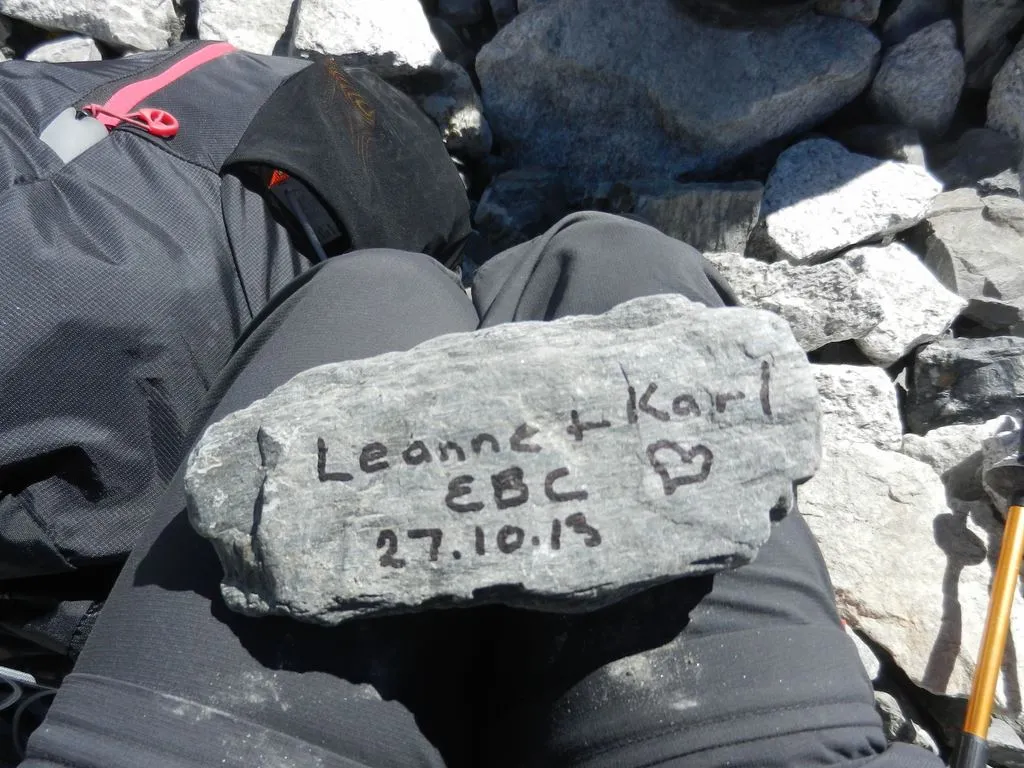 Leanne + Karl
EBC ♡
27.10.13